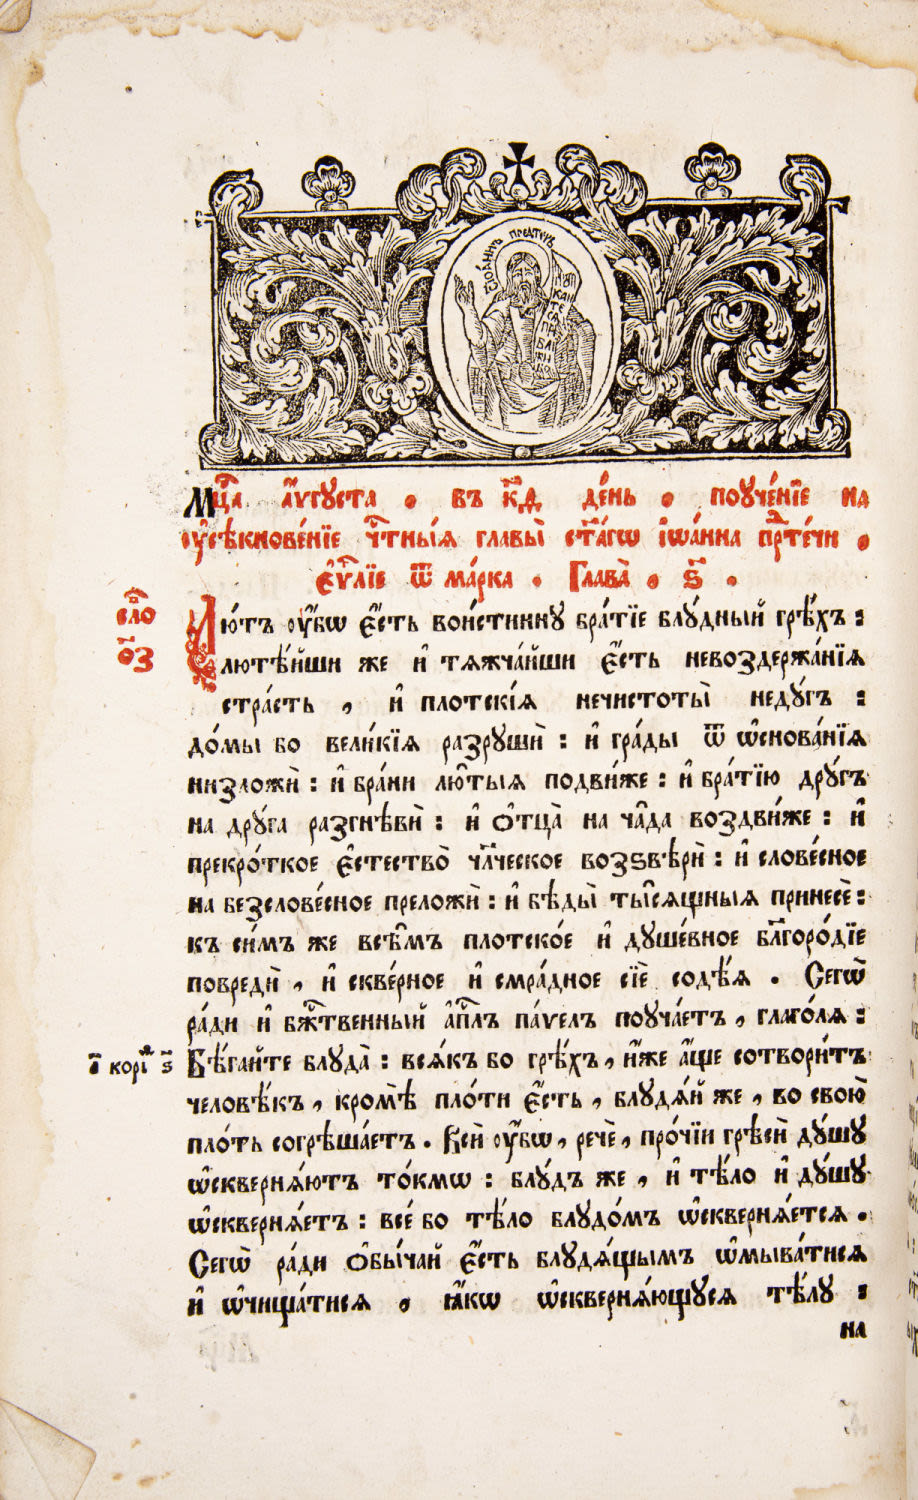 СВ IѠАННЪ ПРЕДТЕЧЪ
Мц҃а а҆́ѵгꙋста . въ к҃ѳ де́нь . поꙋче́нїе на
ᲂу҆сѣкнове́нїе чⷭ҇тныѧ главы̀ ст҃а́гѡ і҆ѡа́нна прⷣте́чи .
є҆ѵⷢ҇лїе ѿ ма́рка . Глава̀ . ѕ҃ .
сло́
ѻ҃з
Лю́тъ ᲂу҆́бѡ є҆́сть вои́стиннꙋ бра́тїе блꙋ́дный грѣ́хъ :
лютѣ́йши же и҆ тѧжча́йши є҆́сть невоздержа́нїѧ
стра́сть , и҆ пло́тскїѧ нечистоты̀ недꙋ́гъ :
до́мы бо вели́кїѧ разрꙋшѝ : и҆ гра́ды ѿ ѡ҆снова́нїѧ
низложѝ : и҆ бра́ни лю́тыѧ подви́же : и҆ бра́тїю дрꙋ́гъ
на дрꙋ́га разгнѣвѝ : и҆ ѻ҆тца̀ на ча̑да воздви́же : и҆
прекро́ткое є҆стество̀ чл҃ческое возѕвѣрѝ : и҆ слове́сное
на безслове́сное преложѝ : и҆ бѣды̀ ты́сѧщныѧ принесѐ :
къ си̑мъ же всѣ̑мъ плотско́е и҆ дꙋше́вное бл҃горо́дїе
повредѝ , и҆ скве́рное и҆ смра́дное сїѐ содѣ́ѧ . Сегѡ̀
ра́ди и҆ бж҃твенный а҆пⷭ҇лъ па́ѵелъ поꙋча́етъ , глаго́лѧ :
а҃ корі́ⷩ ѕ҃
Бѣ́гайте блꙋда̀ : всѧ́къ бо грѣ́хъ , и҆́же а҆́ще сотвори́тъ
человѣ́къ , кромѣ̀ пло́ти є҆́сть , блꙋдѧ́й же , во свою̀
пло́ть согрѣша́етъ . Всѝ ᲂу҆́бѡ , речѐ , про́чїи грѣсѝ дꙋ́шꙋ
ѡ҆сквернѧ́ютъ то́кмѡ : блꙋ́дъ же , и҆ тѣ́ло и҆ дꙋ́шꙋ
ѡ҆сквернѧ́етъ : все́ бо тѣ́ло блꙋдо́мъ ѡ҆сквернѧ́етсѧ .
Сегѡ̀ ра́ди ѻ҆бы́чай є҆́сть блꙋдѧ́щымъ ѡ҆мыва́тисѧ
и҆ ѡ҆чища́тисѧ , ꙗ҆́кѡ ѡ҆сквернѧ́ющꙋсѧ тѣ́лꙋ :
на